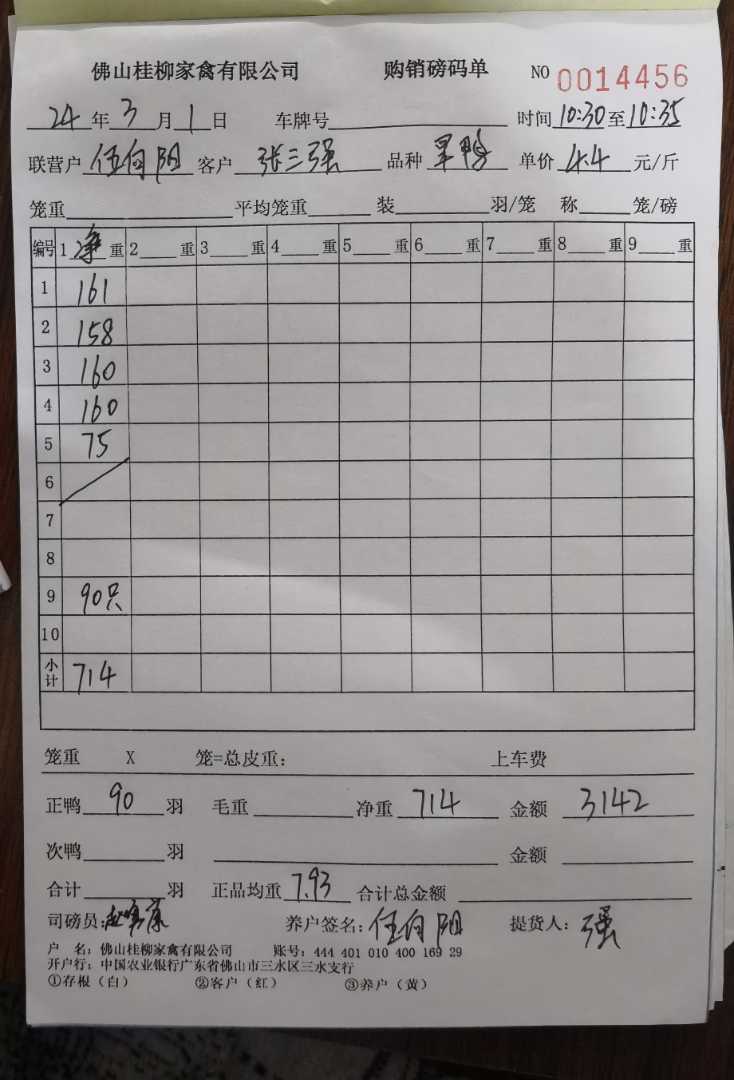 佛山桂柳家禽有限公司 购销磅码单 NO 0014456
24年3月1日 车牌号 时间10:30至10:35
联营户 伍向阳 客户 张三强 品种 旱鸭 单价 4.4 元/斤
笼重 平均笼重 装 羽/笼 称 笼/磅
编号 1 净 重 2 重 3 重 4 重 5 重 6 重 7 重 8 重 9 重
1 161
2 158
3 160
4 160
5 75
6
7
8
9 90只
10
小计 714
笼重 X 笼=总皮重: 上车费
正鸭 90 羽 毛重 净重 714 金额 3142
次鸭 羽 金额
合计 羽 正品均重 7.93 合计总金额
司磅员: 养户签名: 伍向阳 提货人: 强
户 名: 佛山桂柳家禽有限公司 账号: 444 401 010 400 169 29
开户行: 中国农业银行广东省佛山市三水区三水支行
①存根（白） ②客户（红） ③养户（黄）